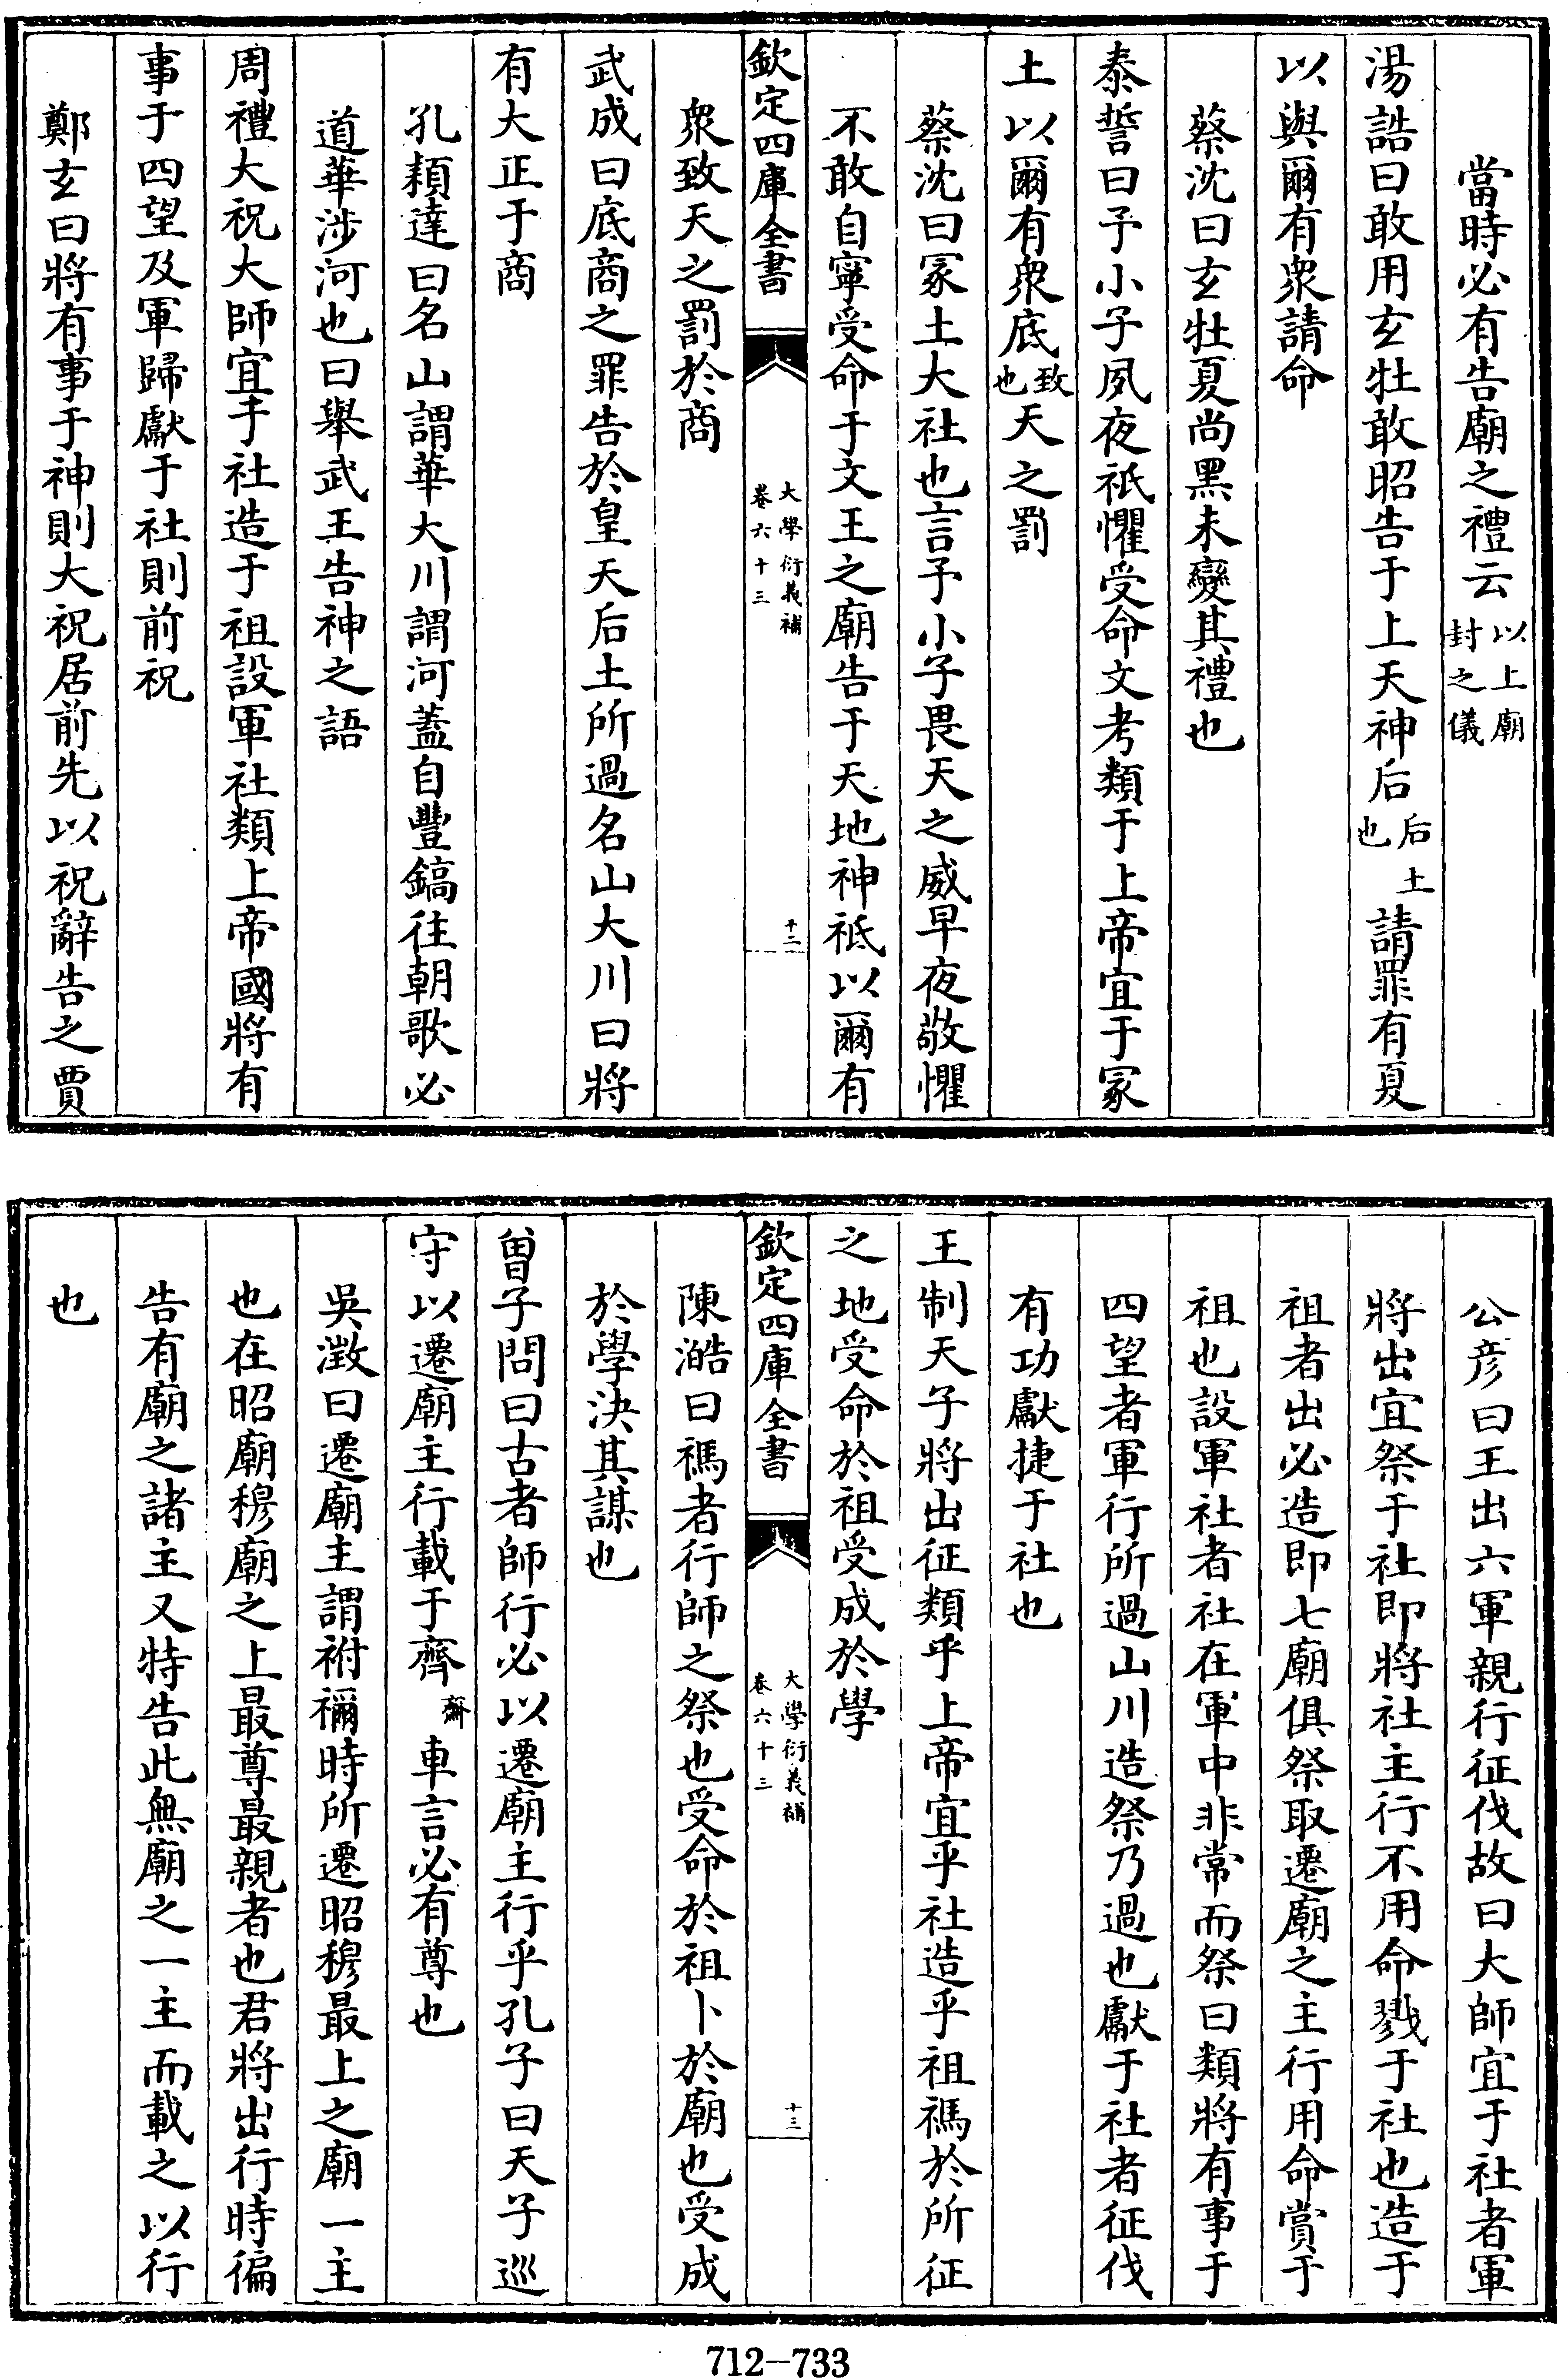 當時必有告廟之禮云以上廟封之儀
湯誥曰敢用玄牡敢昭告于上天神后后土也請罪有夏
以與爾有衆請命
蔡沈曰玄牡夏尚黑未變其禮也
泰誓曰予小子夙夜祇懼受命文考類于上帝宜于冢
土以爾有衆底致也天之罰
蔡沈曰冢土大社也言予小子畏天之威早夜敬懼
不敢自寧受命于文王之廟告于天地神祇以爾有
欽定四庫全書
大學衍義補
卷六十三
十二
衆致天之罰於商
武成曰底商之罪告於皇天后土所過名山大川曰將
有大正于商
孔穎達曰名山謂華大川謂河蓋自豐鎬往朝歌必
道華涉河也曰舉武王告神之語
周禮大祝大師宜于社造于祖設軍社類上帝國將有
事于四望及軍歸獻于社則前祝
鄭玄曰將有事于神則大祝居前先以祝辭告之賈
公彥曰王出六軍親行征伐故曰大師宜于社者軍
將出宜祭于社即將社主行不用命戮于社也造于
祖者出必造即七廟俱祭取遷廟之主行用命賞于
祖也設軍社者社在軍中非常而祭曰類將有事于
四望者軍行所過山川造祭乃過也獻于社者征伐
有功獻捷于社也
王制天子將出征類乎上帝宜乎社造乎祖禡於所征
之地受命於祖受成於學
欽定四庫全書
大學衍義補
卷六十三
十三
陳澔曰禡者行師之祭也受命於祖卜於廟也受成
於學決其謀也
曾子問曰古者師行必以遷廟主行乎孔子曰天子巡
守以遷廟主行載于齊齋車言必有尊也
吳澂曰遷廟主謂祔禰時所遷昭穆最上之廟一主
也在昭廟穆廟之上最尊最親者也君將出行時徧
告有廟之諸主又特告此無廟之一主而載之以行
也
712-733